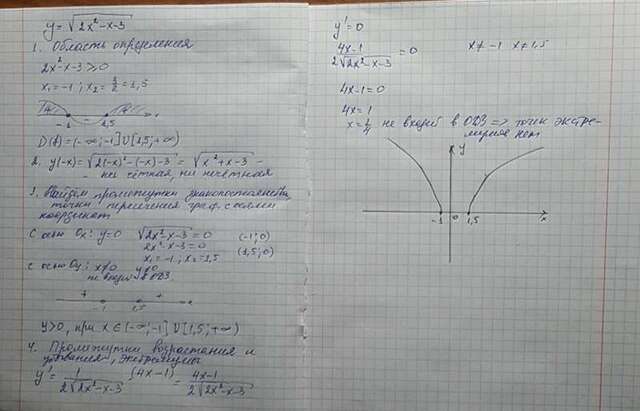 y = √(2x²-x-3)
1. Область определения
2x²-x-3≥0
x₁=-1; x₂=3/2=1,5
-1 1,5 x
D(f)=(-∞;-1]U[1,5;+∞)
2. y(-x)=√(2(-x)²-(-x)-3 = √(x²+x-3 -
- ни чётная, ни нечётная
3. Найдём промежутки знакопостоянства,
точки пересечения граф. с осями
координат
С осью Ox: y=0 √(2x²-x-3) = 0 (-1;0)
2x²-x-3=0 (1,5;0)
x₁=-1; x₂=1,5
с осью Oy: x≠0 y≠0
не входит в ОДЗ
+ + x
-1 1,5
y>0, при x∈(-∞;-1]U[1,5;+∞)
4. Промежутки возрастания и
убывания, экстремумы
y' = 1/(2√(2x²-x-3)) · (4x-1) = (4x-1)/(2√(2x²-x-3))
y'=0
(4x-1)/(2√(2x²-x-3)) = 0 x≠-1 x≠1,5
4x-1=0
4x=1
x=1/4 не входит в ОДЗ => точек экстре-
мумов нет
y
-1 0 1,5 x